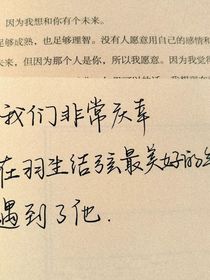 因为我想和你有个未来。
足够成熟，也足够理智。没有人愿意用自己的感情和
未来，但因为那个人是你，所以我愿意。因为我觉得
我们非常庆幸
在羽生结弦最美好的年
遇到了他.